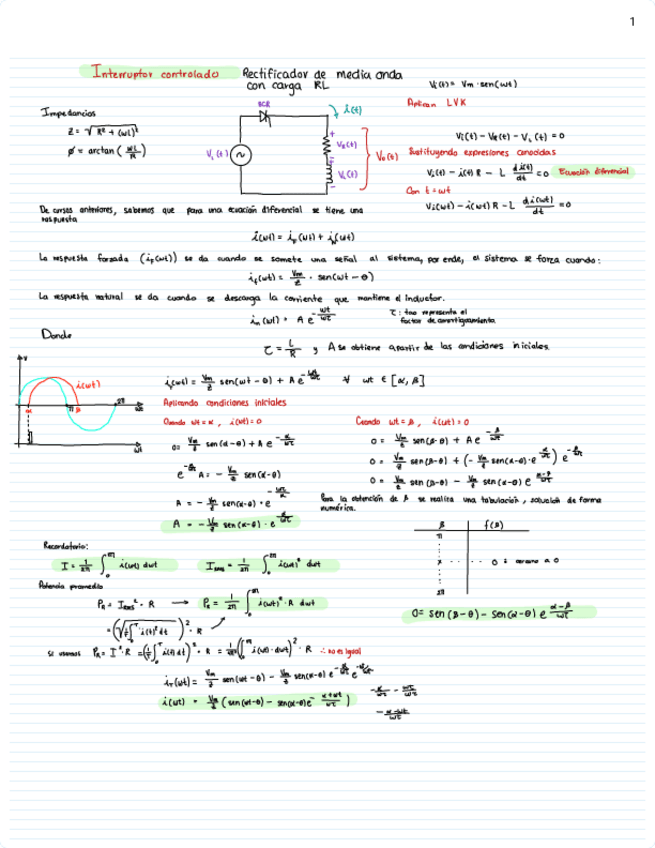 1
Interruptor controlado Rectificador de media onda
con carga RL
Vi(t) = Vm · sen(wt)
Aplican LVK
Impedancias
Z = √(R² + (wL)²)
ø = arctan (wL/R)
SCR
i(t)
Vi(t)
VR(t)
VL(t)
Vo(t)
Vi(t) - VR(t) - VL(t) = 0
Sustituyendo expresiones conocidas
Vi(t) - i(t) R - L di(t)/dt = 0 Ecuación diferencial
Con t = wt
Vi(wt) - i(wt) R - L di(wt)/dt = 0
De cursos anteriores, sabemos que para una ecuación diferencial se tiene una
respuesta
La respuesta forzada (if(wt)) se da cuando se somete una señal al sistema, por ende, el sistema se forza cuando:
if(wt) = Vm/Z · sen(wt - θ)
La respuesta natural se da cuando se descarga la corriente que mantiene el inductor.
in(wt) = A e^(-wt/wτ)
τ: tao representa el
factor de amortiguamiento
Donde
τ = L/R y A se obtiene apartir de las condiciones iniciales.
v
i(wt)
α
π
β
2π
wt
wt
= Vm/Z sen(wt - θ) + A e^(-wt/wτ) ∀ wt ∈ [α, β]
Aplicando condiciones iniciales
Cuando wt = α, i(wt) = 0
0 = Vm/Z sen(α-θ) + A e^(-α/wτ)
e^(-α/wτ) A = - Vm/Z sen(α-θ)
A = - Vm/Z sen(α-θ) · e
A = - Vm/Z sen(α-θ) · e^(α/wτ)
Cuando wt = β, i(wt) = 0
0 = Vm/Z sen(β-θ) + A e^(-β/wτ)
0 = Vm/Z sen(β-θ) + (- Vm/Z sen(α-θ) · e^(α/wτ)) e^(-β/wτ)
0 = Vm/Z sen(β-θ) - Vm/Z sen(α-θ) e^((α-β)/wτ)
Para la obtención de β se realiza una tabulación, solución de forma
numérica.
β f(β)
π
x 0 ó cercano a 0
2π
0 = sen(β-θ) - sen(α-θ) e^((α-β)/wτ)
Recordatorio:
Potencia promedio
PR = Irms² · R →
Si usamos
∴ no es igual